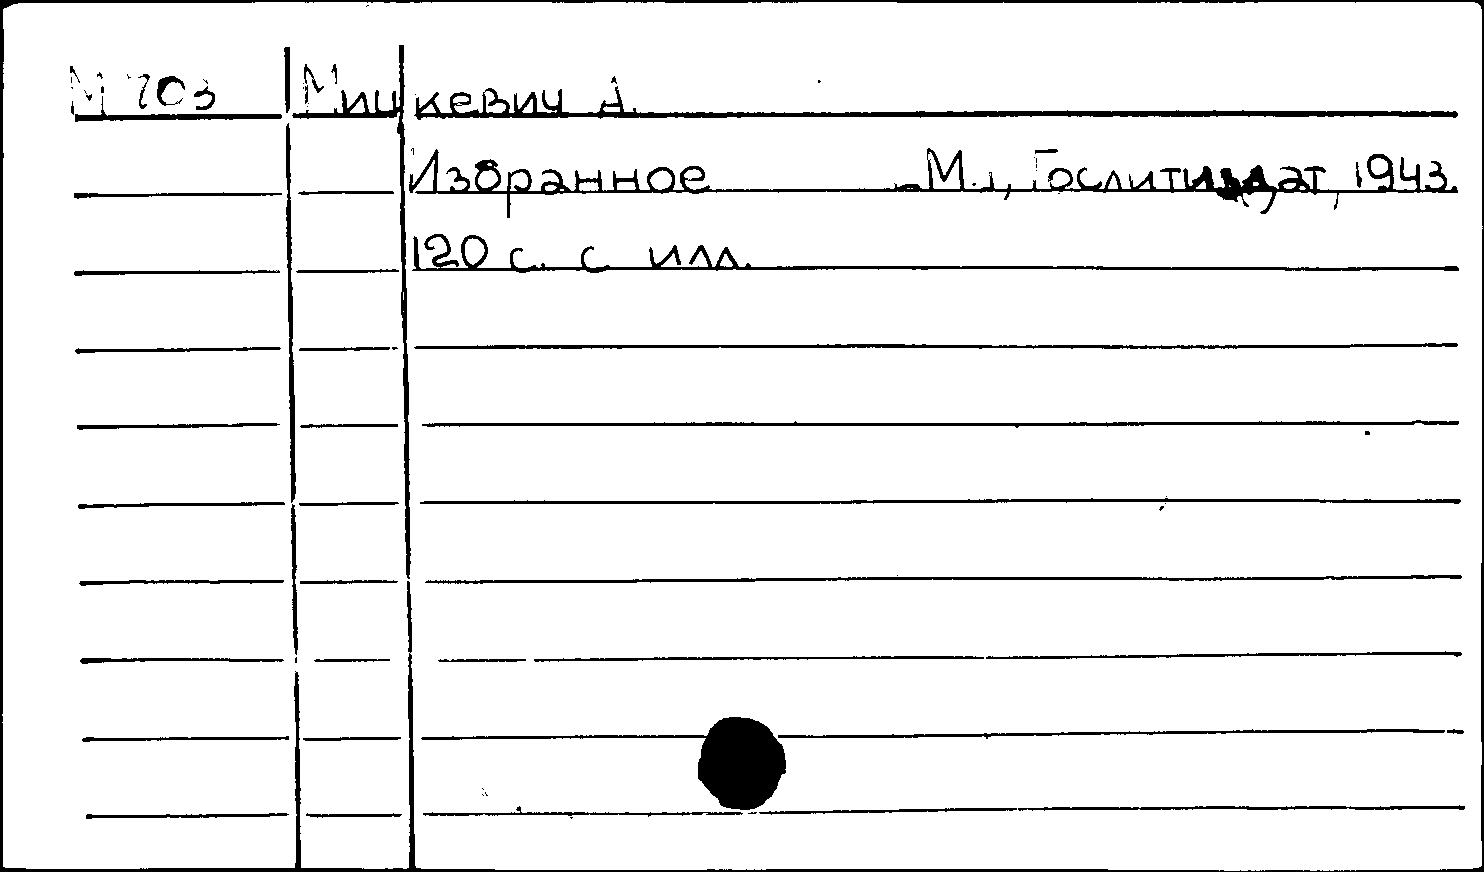 М 703 Мицкевич А.
Избранное - М., Гослитиздат, 1943.
120 с. с илл.